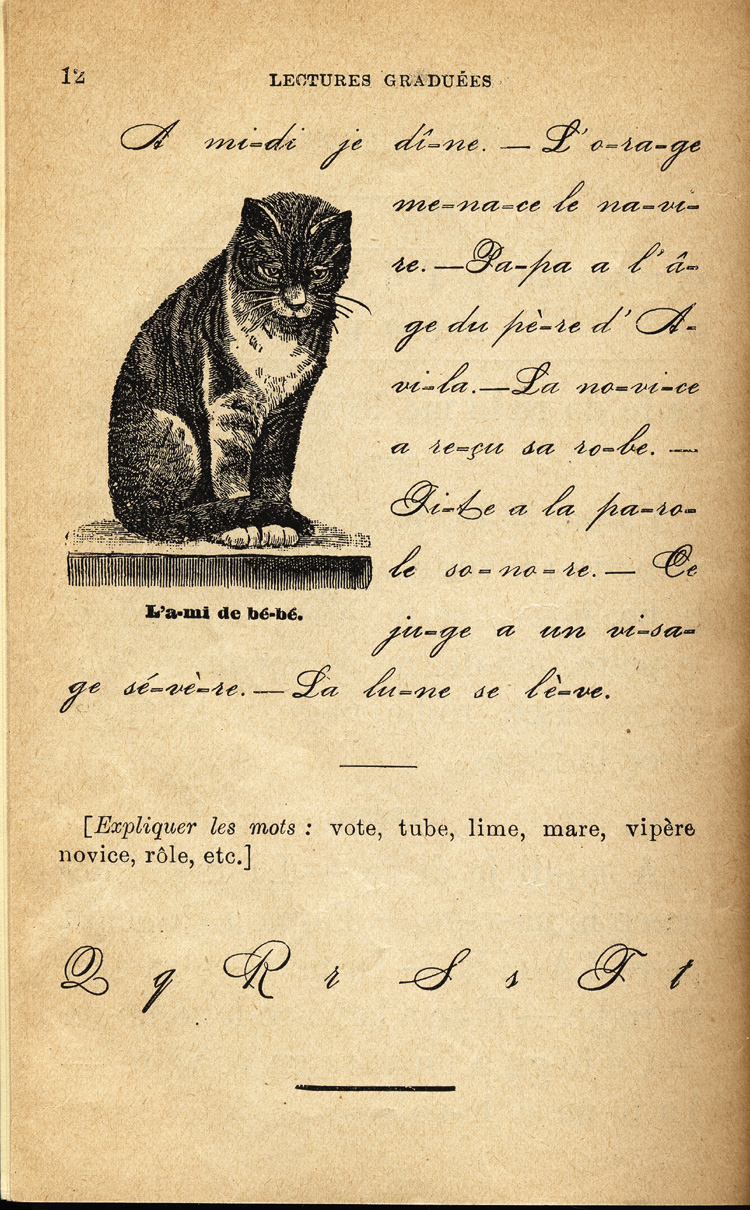 12 LECTURES GRADUÉES
A mi=di je dî=ne. — L'o=ra=ge
me=na=ce le na=vi=
re. — Pa=pa a l'â=
ge du pè=re d'A=
vi=la. — La no=vi=ce
a re=çu sa ro=be. —
Ti=te a la pa=ro=
le so=no=re. — Ce
ju=ge a un vi=sa=
ge sé=vè=re. — La lu=ne se lè=ve.
L'a-mi de bé-bé.
[Expliquer les mots : vote, tube, lime, mare, vipère
novice, rôle, etc.]
Q q R r S s T t